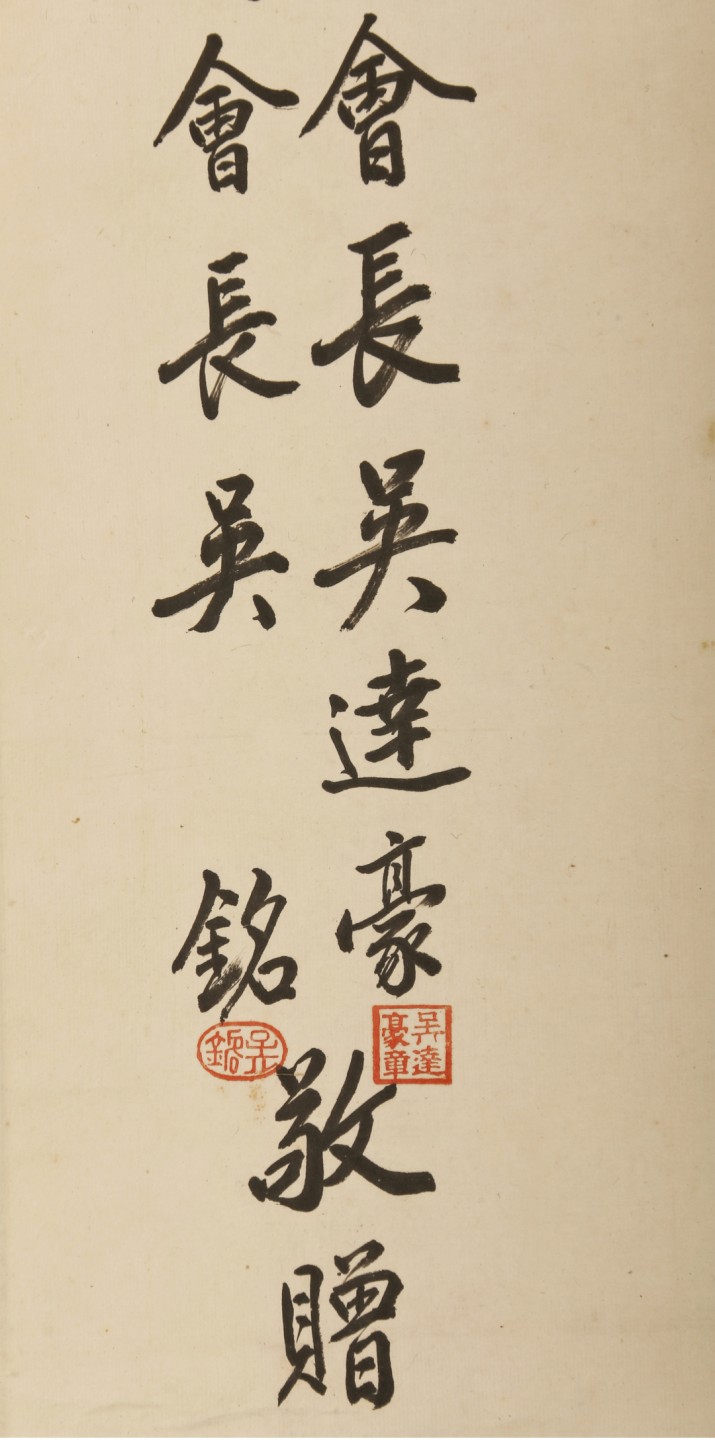 會長吳達豪
會長吳銘
敬贈
吳達豪章
吳銘